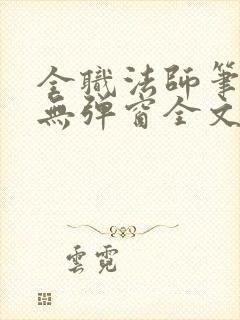 全職法師筆
無彈窗全文
雲霓